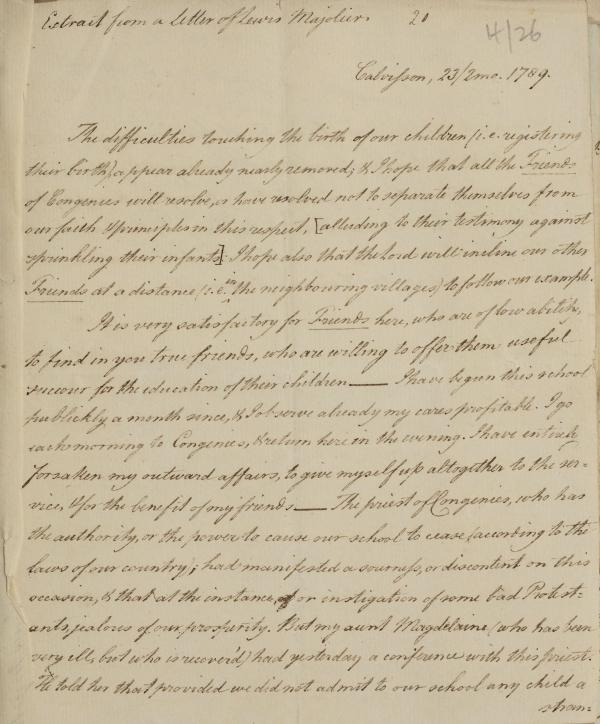 Extract from a Letter of Lewis Majolier. 20
4/26
Calvisson, 23/2mo. 1789.
The difficulties touching the birth of our children (i.e. registering
their birth,) appear already nearly removed; & I hope that all the Friends
of Congenies will resolve, or have resolved not to separate themselves from
our faith & principles in this respect, [alluding to their testimony against
sprinkling their infants] I hope also that the Lord will incline our other
Friends at a distance (i.e. in the neighbouring villages) to follow our example.
It is very satisfactory for Friends here, who are of low ability,
to find in you true friends, who are willing to offer them useful
succour for the education of their children — I have begun this school
publickly a month since, & I observe already my cares profitable. I go
each morning to Congenies, & return here in the evening. I have entirely
forsaken my outward affairs, to give myself up altogether to the ser-
vice, & for the benefit of my friends — The priest of Congenies, who has
the authority, or the power to cause our school to cease (according to the
laws of our country; had manifested a sourness, or discontent on this
occasion, & that at the instance, or instigation of some bad Protest-
ants, jealous of our prosperity. But my aunt Magdelaine (who has been
very ill, but who is recover'd) had yesterday a conference with this priest.
He told her that provided we did not admit to our school any child a
stran-